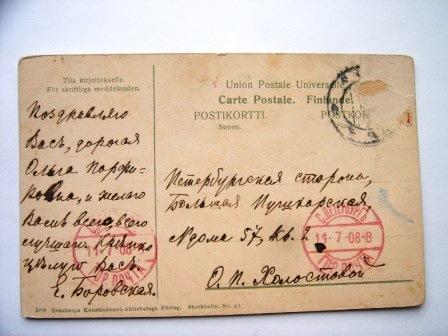 Tila kirjoitukselle.
För skriftliga meddelanden.
Union Postale Universelle
Carte Postale. Finlande
POSTIKORTTI.
Suomi.
POSTKOR
Поздравляю
Васъ, дорогая
Ольга Порфи-
ровна, и желаю
Вамъ всего, всего
лучшаго. Крѣпко
цѣлую Васъ.
Е. Боровская.
Петербургская сторона,
Большая Пушкарская,
№ дома 57, кв. 2
О. П. Холостовой
С.ПЕТЕРБУРГЪ
11-7-08-8
ПОЧТА
11-7-08
ПОЧТА
Granbergs Konstindustri-Aktiebolags Förlag. Stockholm. No. 43